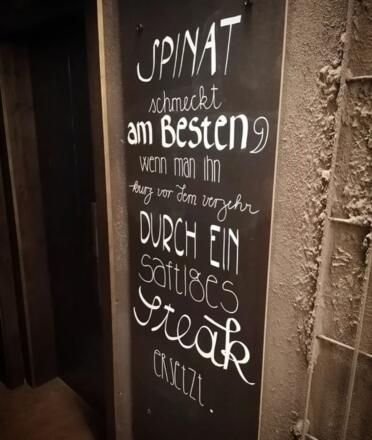 SPINAT
schmeckt
am Besten,
wenn man ihn
kurz vor dem verzehr
DURCH EIN
saftiges
Steak
ersetzt.